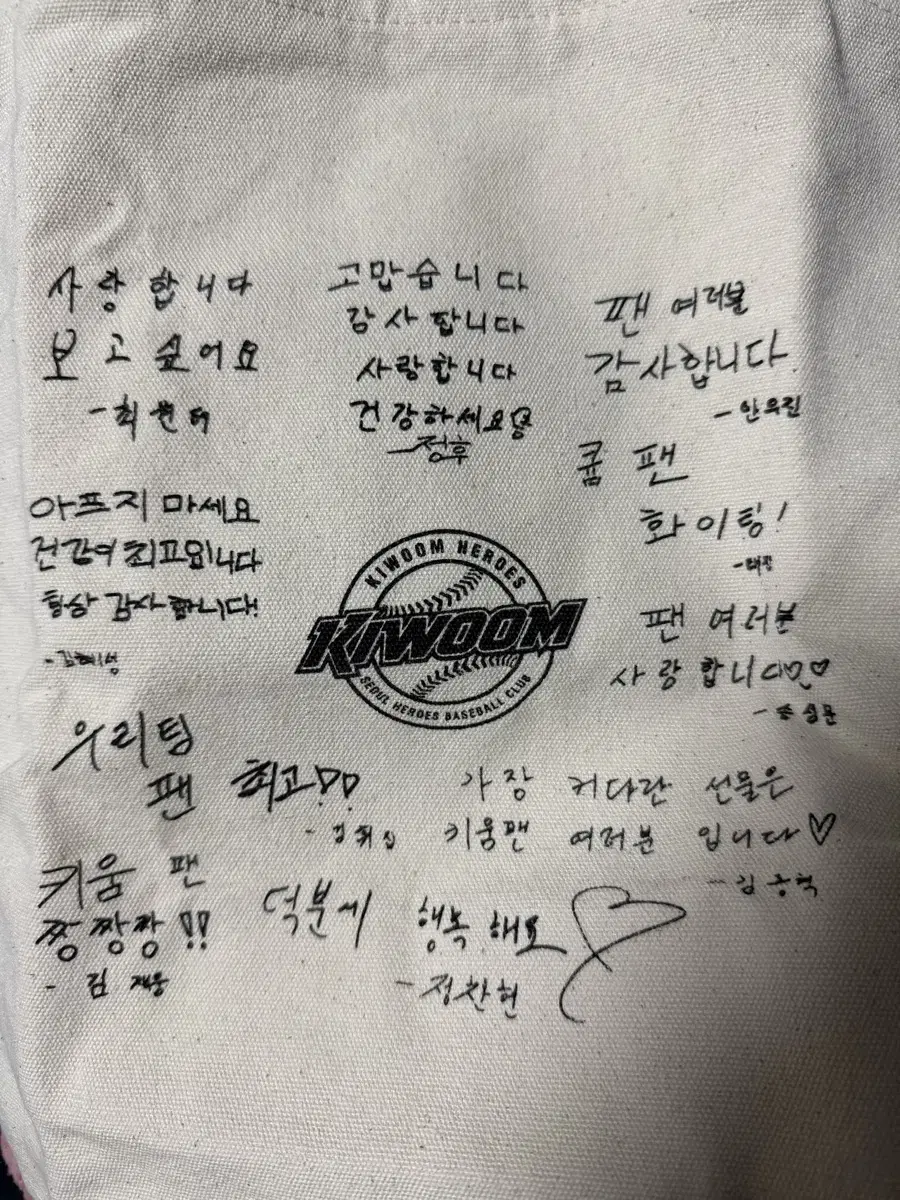 사랑합니다
보고싶어요
-최원태
고맙습니다
감사합니다
사랑합니다
건강하세요용
-정후
팬 여러분
감사합니다
-안우진
큠 팬
화이팅!
아프지 마세요
건강이 최고입니다
항상 감사합니다!
-김혜성
KIWOOM HEROES
KIWOOM
SEOUL HEROES BASEBALL CLUB
팬 여러분
사랑합니다♡♡
-송성문
우리팀
팬 최고!!
-김휘집
가장 커다란 선물은
키움팬 여러분 입니다♡
-김동혁
키움 팬
짱짱짱!!
- 김재웅
덕분에 행복해요
-정찬헌